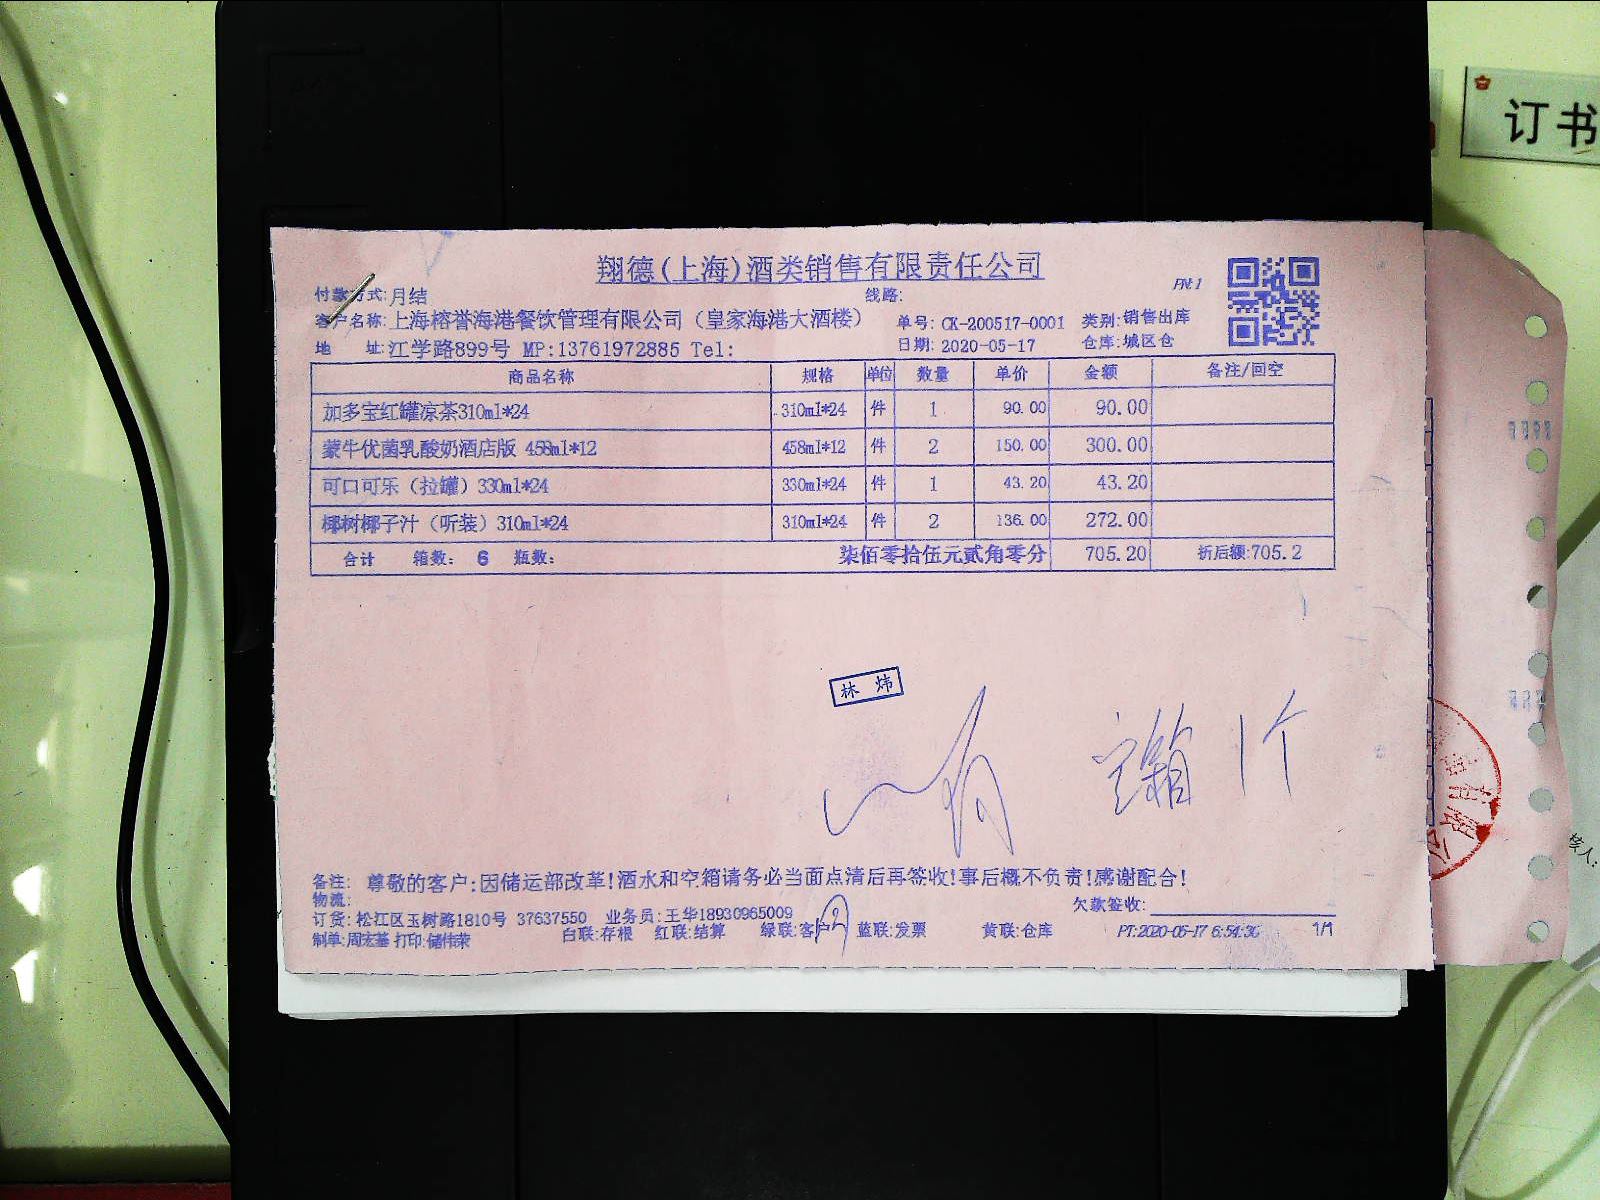 订书
翔德(上海)酒类销售有限责任公司
PN:1
付款方式:月结 线路:
客户名称:上海榕誉海港餐饮管理有限公司（皇家海港大酒楼） 单号:CK-200517-0001 类别:销售出库
地 址:江学路899号 MP:13761972885 Tel: 日期:2020-05-17 仓库:城区仓
商品名称 规格 单位 数量 单价 金额 备注/回空
加多宝红罐凉茶310ml*24 310ml*24 件 1 90.00 90.00
蒙牛优菌乳酸奶酒店版 458ml*12 458ml*12 件 2 150.00 300.00
可口可乐（拉罐）330ml*24 330ml*24 件 1 43.20 43.20
椰树椰子汁（听装）310ml*24 310ml*24 件 2 136.00 272.00
合计 箱数: 6 瓶数: 柒佰零拾伍元贰角零分 705.20 折后额:705.2
林炜
空箱 1个
备注: 尊敬的客户:因储运部改革!酒水和空箱请务必当面点清后再签收!事后概不负责!感谢配合!
物流: 欠款签收:
订货:松江区玉树路1810号 37637550 业务员:王华18930965009
制单:周宏基 打印:储伟荣 白联:存根 红联:结算 绿联:客户 蓝联:发票 黄联:仓库 PT:2020-05-17 6:54:36 1/1
核人: